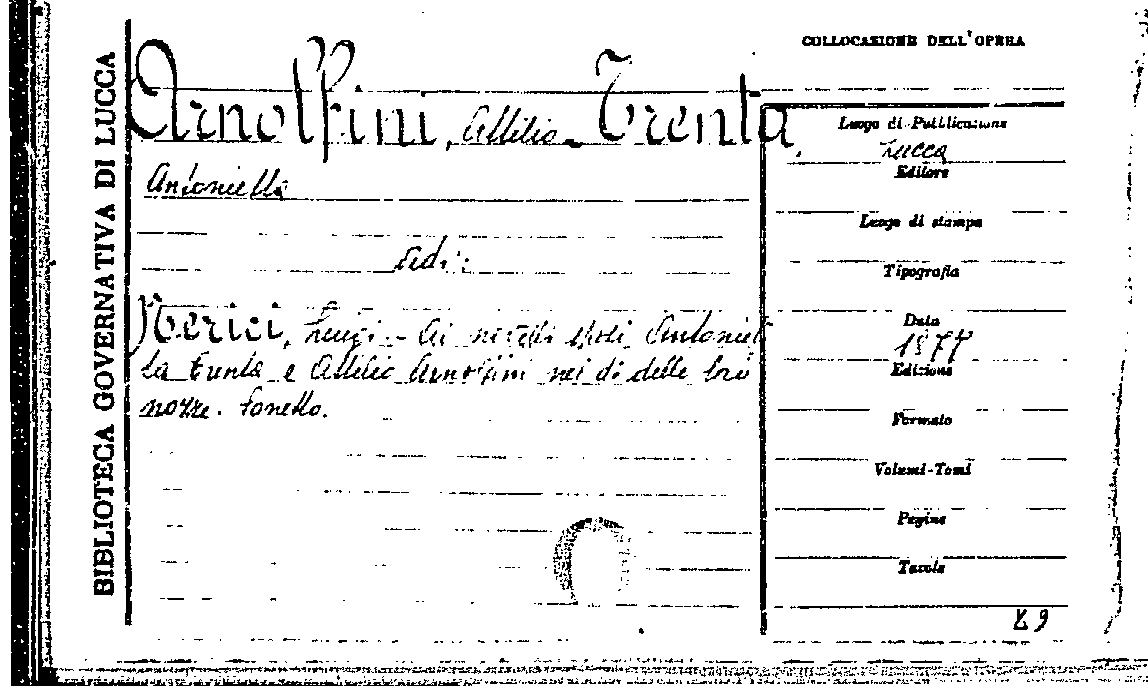 BIBLIOTECA GOVERNATIVA DI LUCCA
COLLOCAZIONE DELL'OPERA
Arnolfini, Attilio - Trenta,
Antoniella
Vedi:
Nerici, Luigi - Ai novelli sposi Antoniel
la Trenta e Attilio Arnolfini nei dì delle loro
nozze. Sonetto.
Luogo di Pubblicazione
Lucca
Editore
Luogo di stampa
Tipografia
Data
1877
Edizione
Formato
Volumi-Tomi
Pagine
Tavole